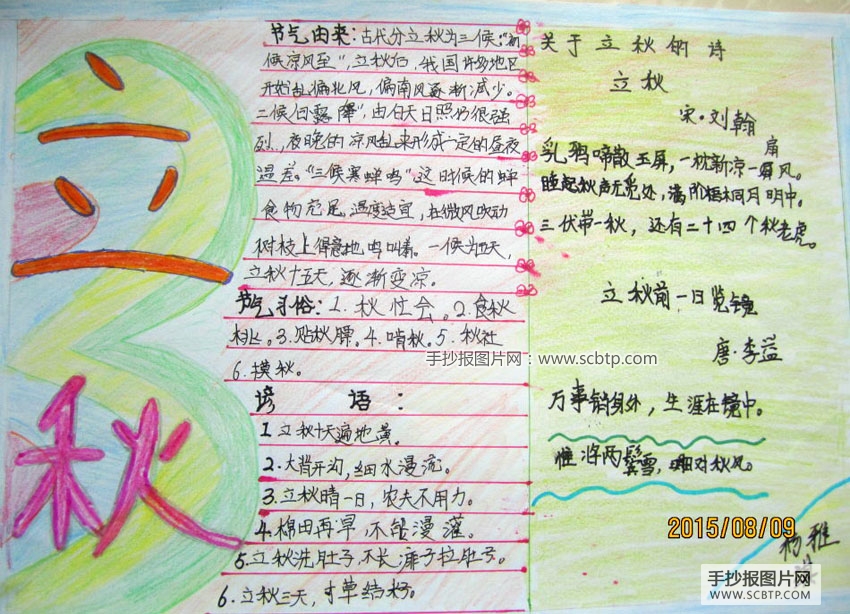 立
秋
节气由来:古代分立秋为三候:"初
候凉风至",立秋后,我国许多地区
开始乱偏北风,偏南风逐渐减少。
二候白露降",由白天日照仍很强
烈..,夜晚的凉风乱来形成一定的昼夜
温差。"三候寒蝉鸣"这时候的蝉
食物充足,温度适宜,在微风吹动
树枝上得意地鸣叫着。一候为五天,
立秋十五天,逐渐变凉。
节气习俗:1.秋忙会。2.食秋
桃。3.贴秋膘。4.啃秋。5.秋社
6.摸秋。
谚 语:
1立秋十天遍地黄。
2.大背开沟,细水漫流。
3.立秋晴一日,农夫不用力。
4.棉田再旱,不能漫灌。
5.立秋洗肚子,不长痱子拉肚子。
6.立秋三天,寸草结籽。
关于立秋的诗
立秋
宋·刘翰
扇
乳鸦啼散玉屏,一枕新凉一扇风。
睡起秋声无觅处,满阶梧桐月明中。
三伏带一秋,还有二十四个秋老虎。
立秋前一日览镜
唐·李益
万事销身外,生涯在镜中。
惟将两鬓雪,明对秋风。
手抄报图片网:www.scbtp.com
2015/08/09
杨雅
手抄报图片网
WWW.SCBTP.COM